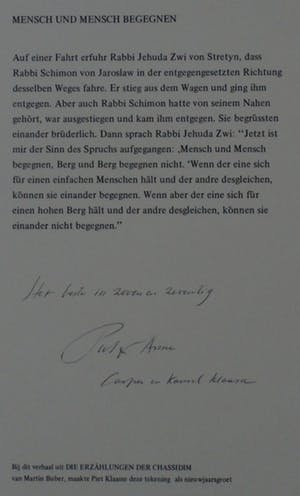 MENSCH UND MENSCH BEGEGNEN
Auf einer Fahrt erfuhr Rabbi Jehuda Zwi von Stretyn, dass
Rabbi Schimon von Jaroslaw in der entgegengesetzten Richtung
desselben Weges fahre. Er stieg aus dem Wagen und ging ihm
entgegen. Aber auch Rabbi Schimon hatte von seinem Nahen
gehört, war ausgestiegen und kam ihm entgegen. Sie begrüssten
einander brüderlich. Dann sprach Rabbi Jehuda Zwi: “Jetzt ist
mir der Sinn des Spruchs aufgegangen: ‚Mensch und Mensch
begegnen, Berg und Berg begegnen nicht. ‘Wenn der eine sich
für einen einfachen Menschen hält und der andre desgleichen,
können sie einander begegnen. Wenn aber der eine sich für
einen hohen Berg hält und der andre desgleichen, können sie
einander nicht begegnen.”
Het beste in zeven en zeventig
Piet & Anne
Casper en Karel Klaasse
Bij dit verhaal uit DIE ERZÄHLUNGEN DER CHASSIDIM
van Martin Buber, maakte Piet Klaasse deze tekening als nieuwjaarsgroet